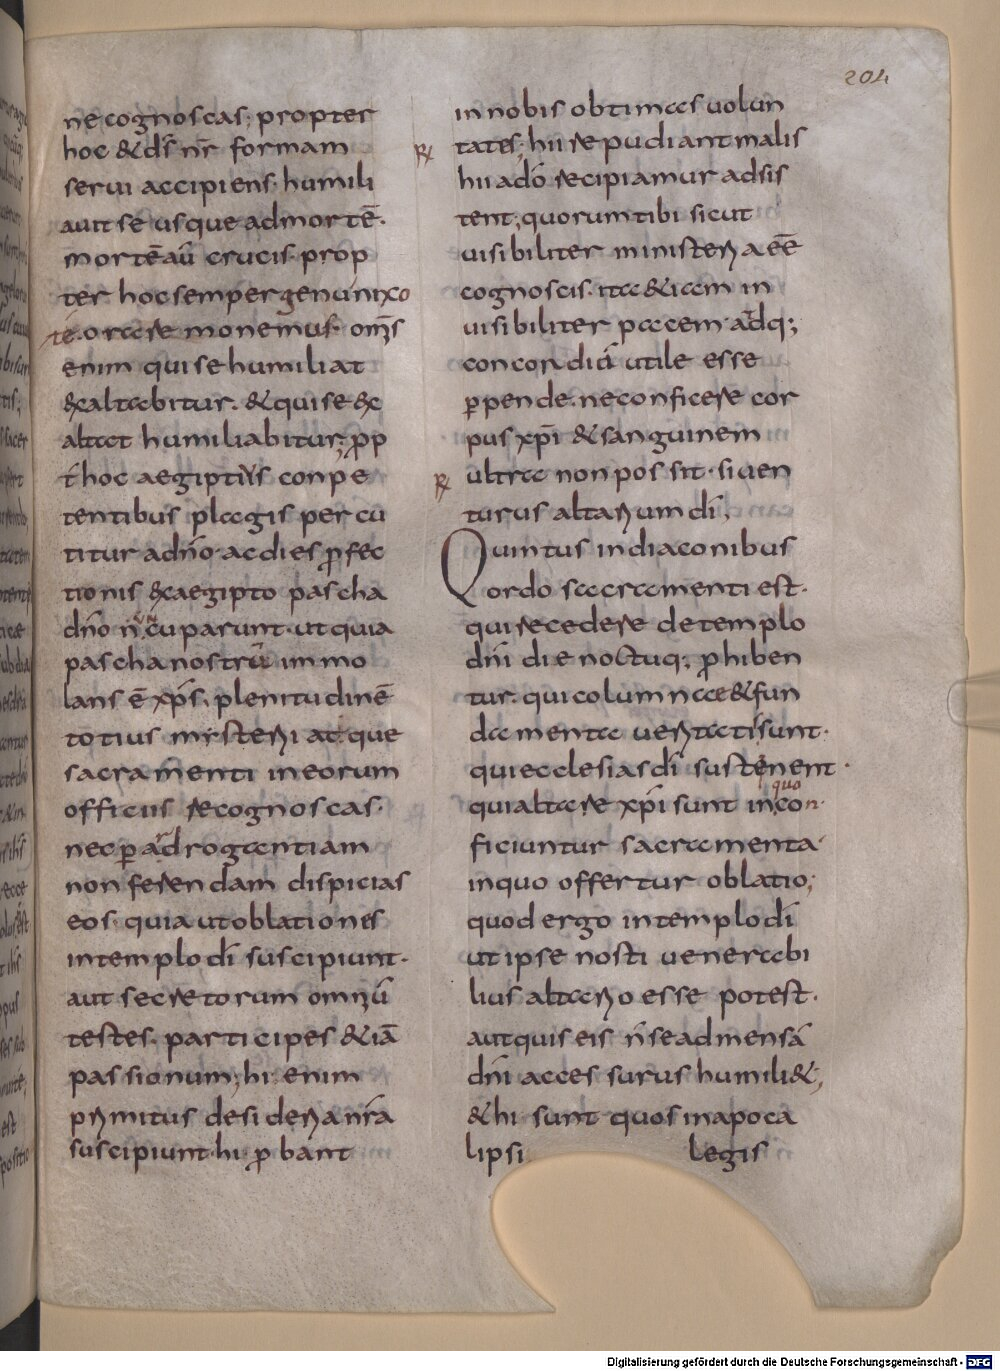 204
ne cognoscas; propter
hoc & ds nr formam
serui accipiens humili
auit se usque admortē.
mortē aū crucis. prop
ter hoc semper genu nixo
te. orare monemus. oms
enim qui se humiliat
&altabitur. & qui se &
altat humiliabitur; prop
t hoc aegiptiis conpe
tentibus plagis percu
titur adno. ac dies pfec
tionis &aegipto pascha
dno nuncuparunt. ut quia
pascha nostrū immo
lans ē xps. plenitudinē
totius misterii atque
sacramenti in eorum
officiis recognoscas.
nec p adrogantiam
non ferendam dispicias
eos. quia ut oblationes
in templo di suscipiunt.
aut secretorum omniū
testes. participes &iā
passionum; hi enim
primitus desideria nra
suscipiunt. hi pbant
in nobis obtimas uolun
tates; hii repudiant malis
hii ado recipiamur adsis
tent; quorum tibi sicut
uisibiliter ministeria eē
cognoscis. ita &iam in
uisibiliter pacem adq;
concordiā utile esse
ppende. ne conficere cor
pus xpi & sanguinem
ultra non possit. si uen
turus altarium di;
Quintus in diaconibus
ordo sacramenti est.
qui recedere de templo
dni die noctuq; phiben
tur. qui columnae & fun
damenta ueritatis sunt.
qui ecclesias di sustenent.
qui altare xpi sunt in quo con
ficiuntur sacramenta
in quo offertur oblatio;
quod ergo in templo di
ut ipse nosti uenerabi
lius altario esse potest.
aut quis eis n se ad mensā
dni accessurus humili&;
& hi sunt quos in apoca
lipsi legis
Digitalisierung gefördert durch die Deutsche Forschungsgemeinschaft - DFG